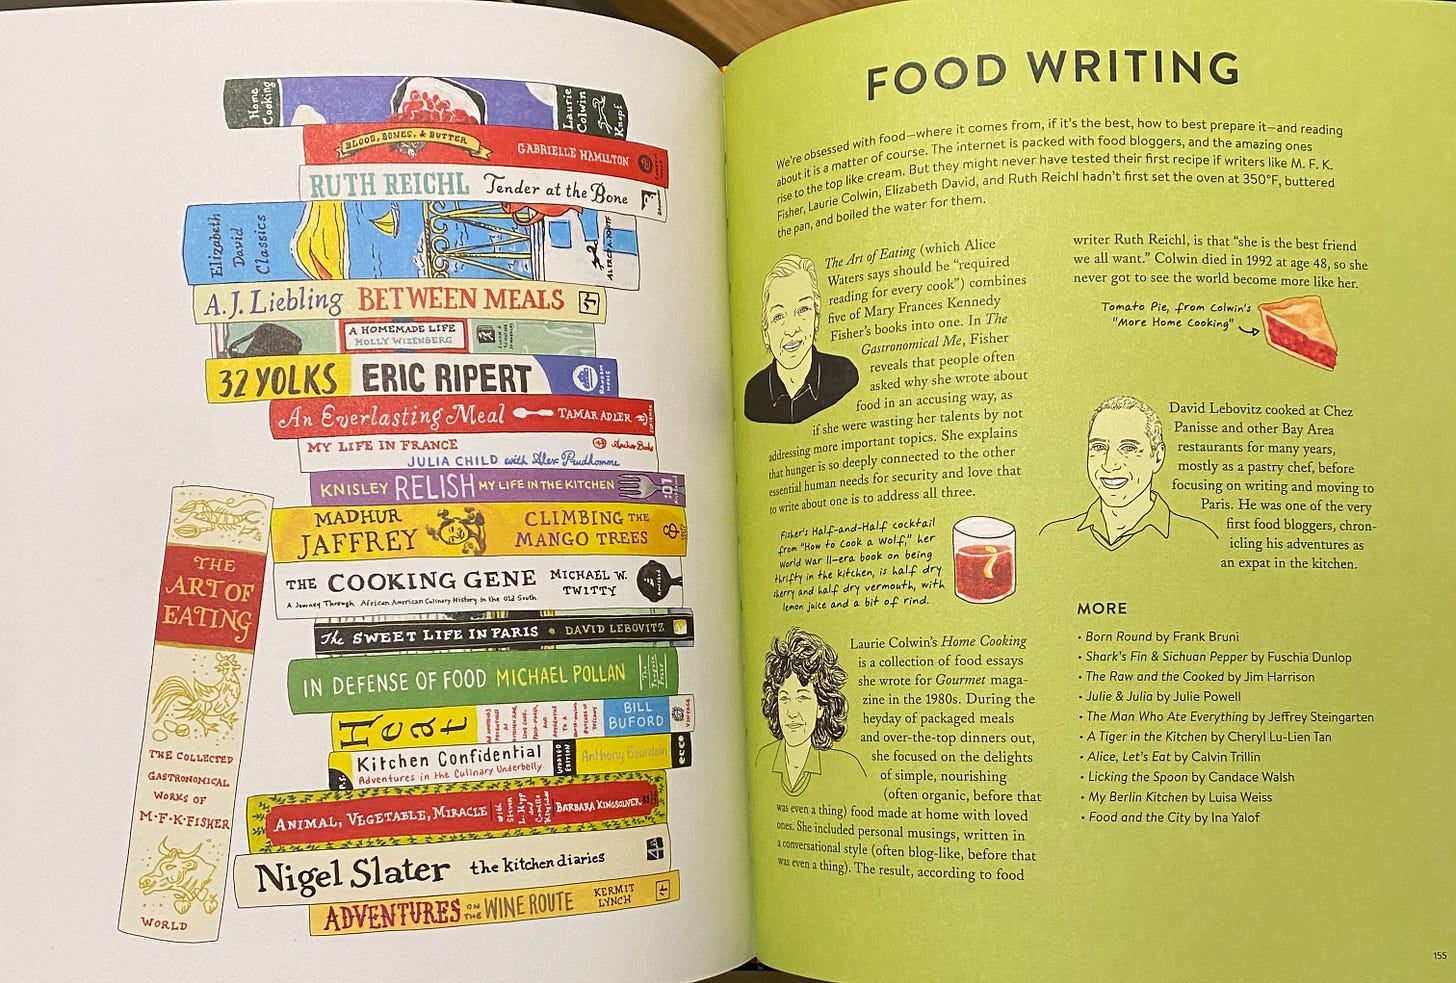 Home
Cooking
Laurie
Colwin
Knopf
BLOOD, BONES, & BUTTER
GABRIELLE HAMILTON
RUTH REICHL Tender at the Bone
Elizabeth
David
Classics
ALFRED A. KNOPF
A.J. Liebling BETWEEN MEALS
A HOMEMADE LIFE
MOLLY WIZENBERG
32 YOLKS ERIC RIPERT
RANDOM
HOUSE
An Everlasting Meal TAMAR ADLER
MY LIFE IN FRANCE
Anchor Books
JULIA CHILD with Alex Prudhomme
KNISLEY RELISH MY LIFE IN THE KITCHEN
:01
MADHUR
JAFFREY
CLIMBING THE
MANGO TREES
THE COOKING GENE MICHAEL W.
TWITTY
A Journey Through African American Culinary History in the Old South
The SWEET LIFE IN PARIS • DAVID LEBOVITZ
IN DEFENSE OF FOOD MICHAEL POLLAN
Heat
BILL
BUFORD
VINTAGE
Kitchen Confidential
Adventures in the Culinary Underbelly
UPDATED
EDITION
Anthony Bourdain
ecco
ANIMAL, VEGETABLE, MIRACLE
with
Steven
L. Hopp
and
Camille
Kingsolver
BARBARA KINGSOLVER
Nigel Slater the kitchen diaries
ADVENTURES ON THE WINE ROUTE
KERMIT
LYNCH
THE
ART OF
EATING
THE COLLECTED
GASTRONOMICAL
WORKS OF
M·F·K·FISHER
WORLD
FOOD WRITING
We're obsessed with food—where it comes from, if it's the best, how to best prepare it—and reading
about it is a matter of course. The internet is packed with food bloggers, and the amazing ones
rise to the top like cream. But they might never have tested their first recipe if writers like M. F. K.
Fisher, Laurie Colwin, Elizabeth David, and Ruth Reichl hadn't first set the oven at 350°F, buttered
the pan, and boiled the water for them.
The Art of Eating (which Alice
Waters says should be "required
reading for every cook") combines
five of Mary Frances Kennedy
Fisher's books into one. In The
Gastronomical Me, Fisher
reveals that people often
asked why she wrote about
food in an accusing way, as
if she were wasting her talents by not
addressing more important topics. She explains
that hunger is so deeply connected to the other
essential human needs for security and love that
to write about one is to address all three.
Fisher's Half-and-Half cocktail
from "How to Cook a Wolf," her
World War II-era book on being
thrifty in the kitchen, is half dry
sherry and half dry vermouth, with
lemon juice and a bit of rind.
Laurie Colwin's Home Cooking
is a collection of food essays
she wrote for Gourmet maga-
zine in the 1980s. During the
heyday of packaged meals
and over-the-top dinners out,
she focused on the delights
of simple, nourishing
(often organic, before that
was even a thing) food made at home with loved
ones. She included personal musings, written in
a conversational style (often blog-like, before that
was even a thing). The result, according to food
writer Ruth Reichl, is that "she is the best friend
we all want." Colwin died in 1992 at age 48, so she
never got to see the world become more like her.
Tomato Pie, from Colwin's
"More Home Cooking"
David Lebovitz cooked at Chez
Panisse and other Bay Area
restaurants for many years,
mostly as a pastry chef, before
focusing on writing and moving to
Paris. He was one of the very
first food bloggers, chron-
icling his adventures as
an expat in the kitchen.
MORE
• Born Round by Frank Bruni
• Shark's Fin & Sichuan Pepper by Fuschia Dunlop
• The Raw and the Cooked by Jim Harrison
• Julie & Julia by Julie Powell
• The Man Who Ate Everything by Jeffrey Steingarten
• A Tiger in the Kitchen by Cheryl Lu-Lien Tan
• Alice, Let's Eat by Calvin Trillin
• Licking the Spoon by Candace Walsh
• My Berlin Kitchen by Luisa Weiss
• Food and the City by Ina Yalof
155